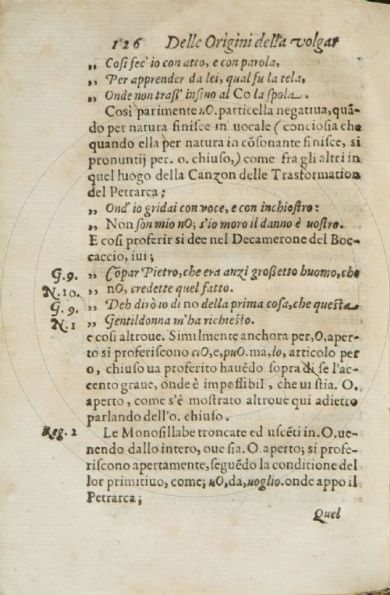 126 Delle Origini della volgar
„ Così fec' io con atto, e con parola,
„ Per apprender da lei, qual fu la tela,
„ Onde non trass' insino al Co la spola.
Così parimente nO. particella negatiua, quã-
do per natura finisce in uocale (conciosia che
quando ella per natura in cõsonante finisce, si
pronuntij per. o. chiuso,) come fra gli altri in
quel luogo della Canzon delle Trasformation
del Petrarca;
„ Ond' io gridai con voce, e con inchiostro:
„ Non son mio nO; s'io moro il danno è uostro.
E cosi proferir si dee nel Decamerone del Boc-
caccio, iui;
G. 9. „ Cõpar Pietro, che era anzi grossetto huomo, che
N. 10. „ nO, credette quel fatto.
G. 9. „ Deh dirò io di no della prima cosa, che questa
N. 1 „ Gentildonna m'ha richiesto.
e cosi altroue. Similmente anchora per, O, aper-
to si proferiscono ciO, e, puO. ma, lo, articolo per
o, chiuso ua proferito hauẽdo sopra di se l'ac-
cento graue, onde è impossibil, che ui stia. O.
aperto, come s'è mostrato altroue qui adietro
parlando dell'o. chiuso.
Reg. 2 Le Monosillabe troncate ed uscẽti in. O. ue-
nendo dallo intero, oue sia. O. aperto; si profe-
riscono apertamente, seguẽdo la conditione del
lor primitiuo, come; uO, da, uoglio. onde appo il
Petrarca;
Quel